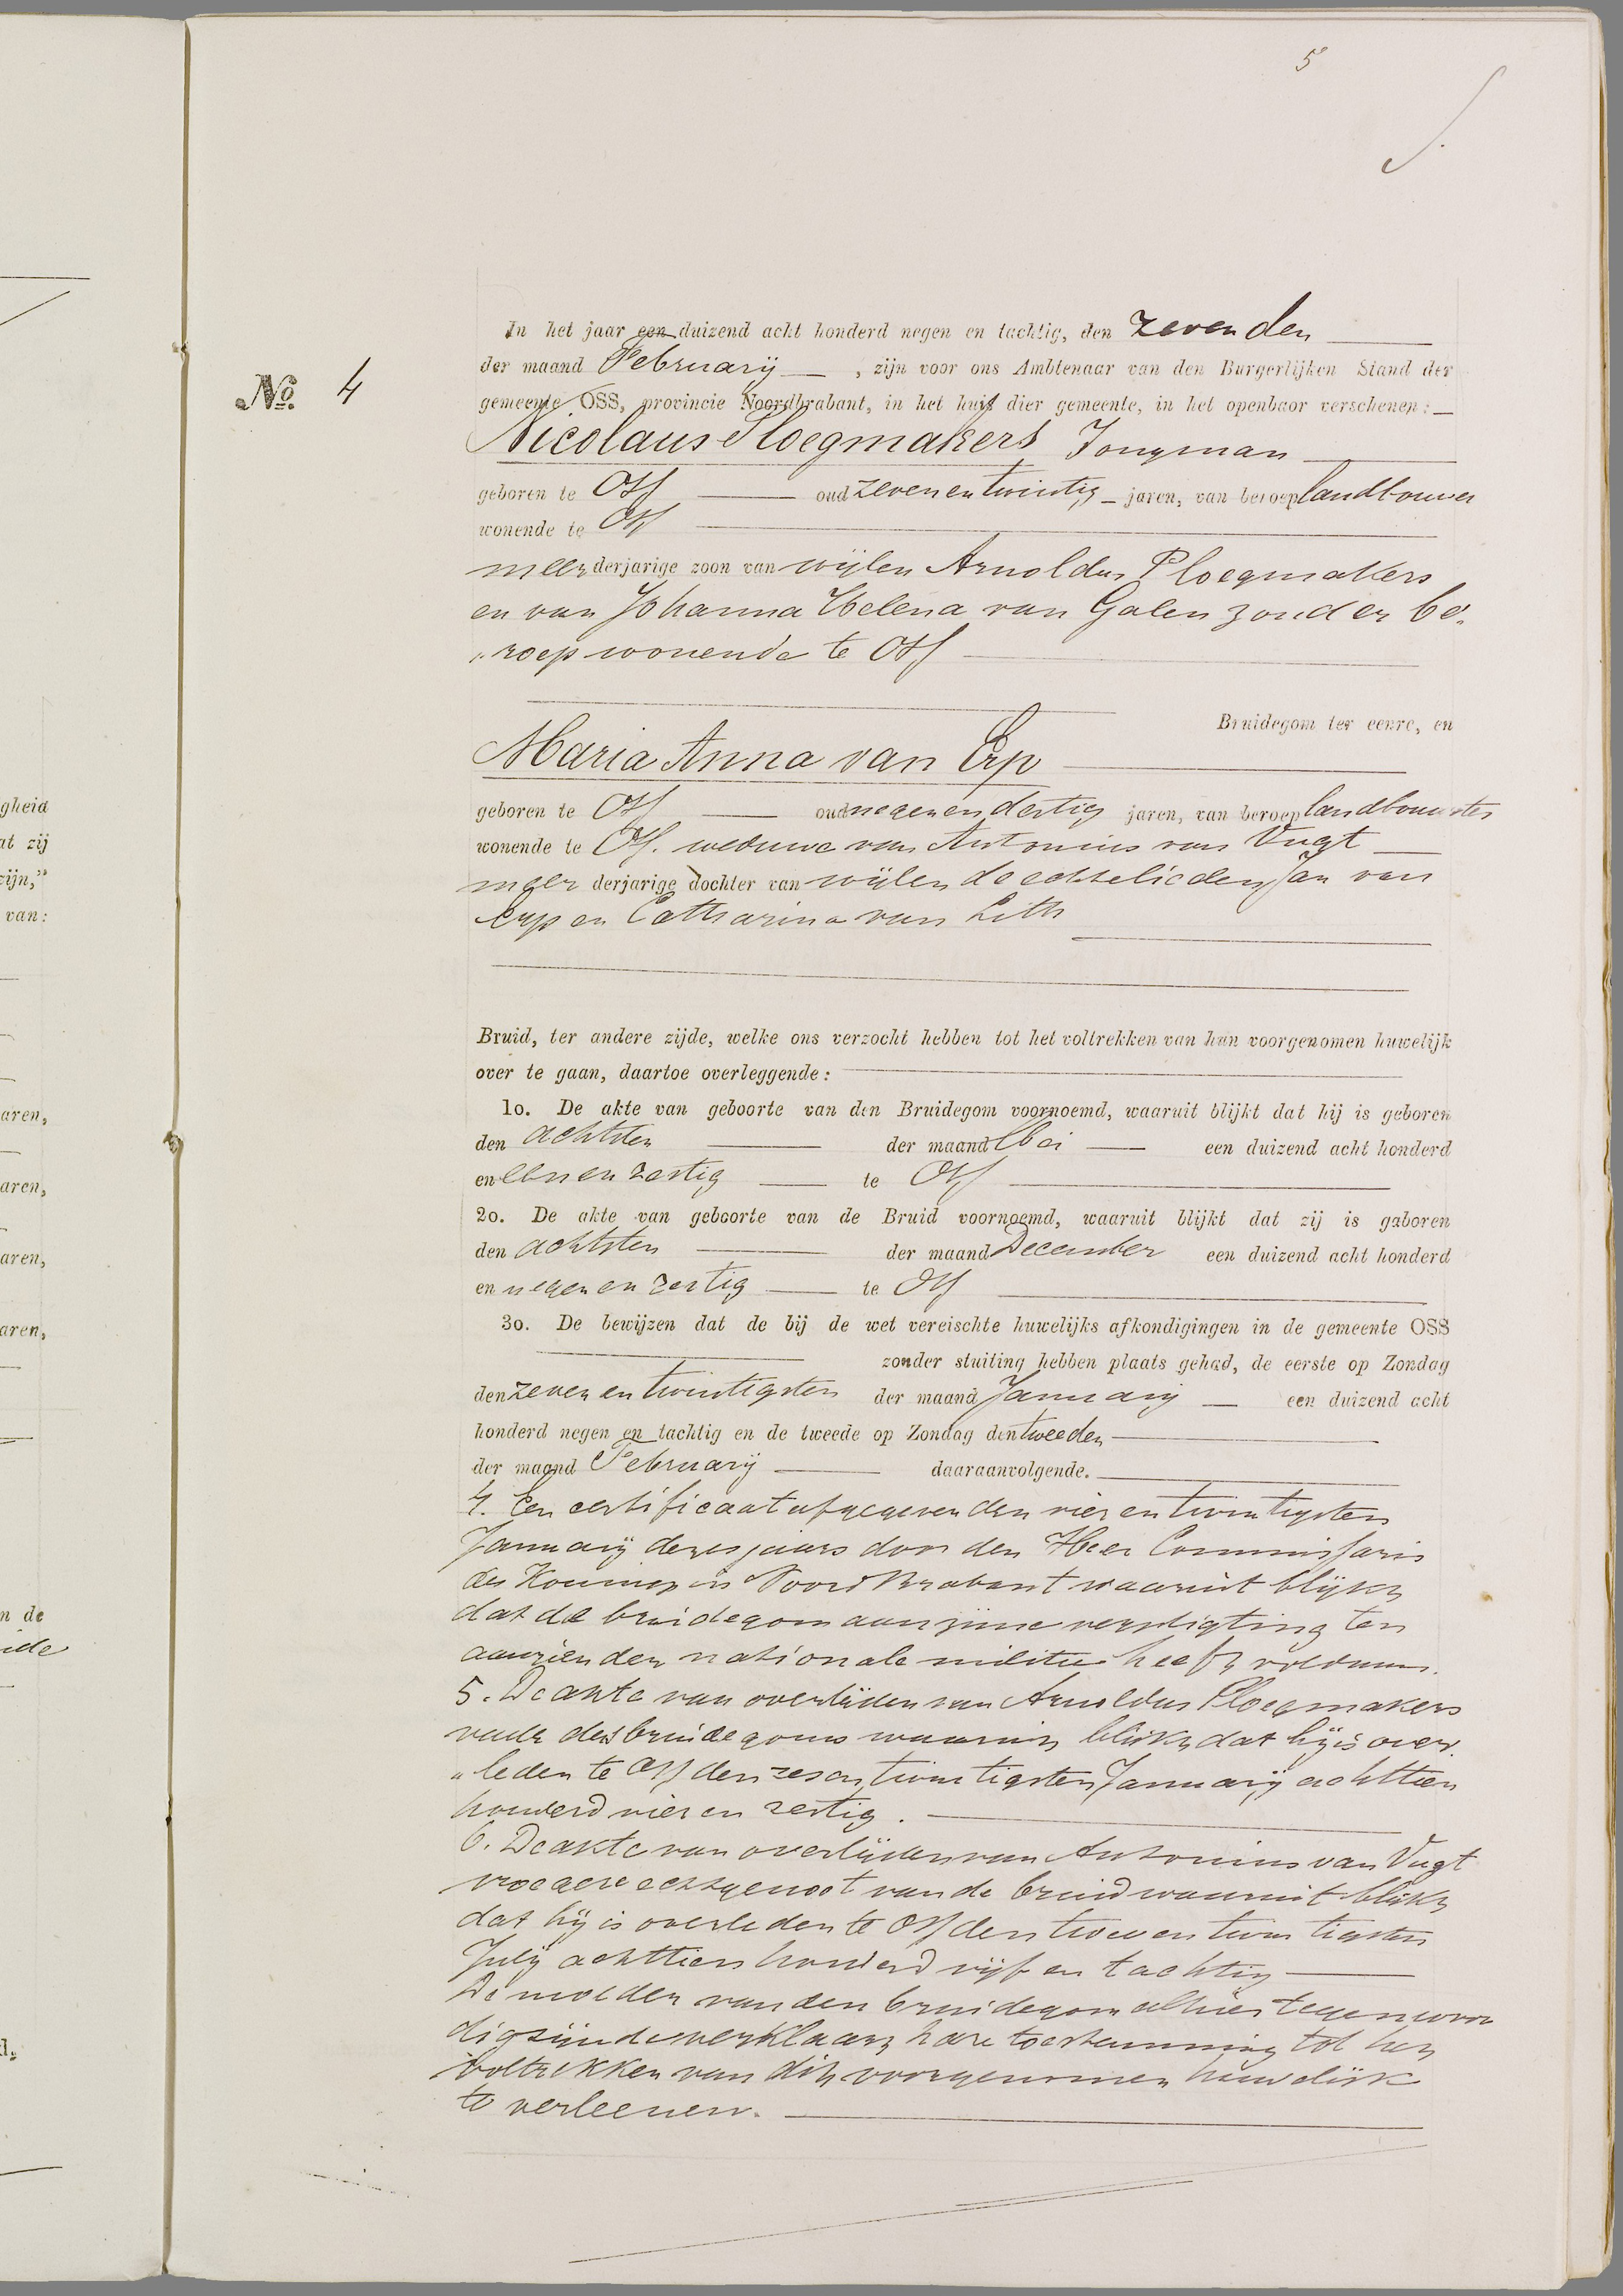 5
In het jaar een duizend acht honderd negen en tachtig, den zevenden
der maand February, zijn voor ons Ambtenaar van den Burgerlijken Stand der
No. 4
gemeente OSS, provincie Noordbrabant, in het huis dier gemeente, in het openbaar verschenen:
Nicolaus Ploegmakers Jongman
geboren te Oss oud zeven en twintig jaren, van beroep landbouwer
wonende te Oss
meerderjarige zoon van wijlen Arnoldus Ploegmakers
en van Johanna Helena van Galen zonder be-
roep wonende te Oss
Bruidegom ter eenre, en
Maria Anna van Erp
geboren te Oss oud negen en dertig jaren, van beroep landbouwster
wonende te Oss. weduwe van Antonius van Vugt
meerderjarige dochter van wijlen de echtelieden Jan van
Erp en Catharina van Lith
Bruid, ter andere zijde, welke ons verzocht hebben tot het voltrekken van hun voorgenomen huwelijk
over te gaan, daartoe overleggende:
1o. De akte van geboorte van den Bruidegom voornoemd, waaruit blijkt dat hij is geboren
den achtsten der maand Mei een duizend acht honderd
en een en zestig te Oss
2o. De akte van geboorte van de Bruid voornoemd, waaruit blijkt dat zij is geboren
den achtsten der maand December een duizend acht honderd
en negen en zestig te Oss
3o. De bewijzen dat de bij de wet vereischte huwelijks afkondigingen in de gemeente OSS
zonder stuiting hebben plaats gehad, de eerste op Zondag
den zeven en twintigsten der maand January een duizend acht
honderd negen en tachtig en de tweede op Zondag den tweeden
der maand February daaraanvolgende.
4. Een certificaat afgegeven den vier en twintigsten
January dezes jaars door den Heer Commissaris
des Konings in Noord Brabant waaruit blijkt
dat de bruidegom aan zijne verpligting ten
aanzien der nationale militie heeft voldaan.
5. De akte van overlijden van Arnoldus Ploegmakers
vader des bruidegoms waaruit blijkt dat hij is over-
leden te Oss den zes en twintigsten January achttien
honderd vier en zestig.
6. De akte van overlijden van Antonius van Vugt
vroegere echtgenoot van de bruid waaruit blijkt
dat hij is overleden te Oss den twee en twintigsten
July achttien honderd vijf en tachtig
De moeder van den bruidegom alhier tegenwoor
dig zijnde verklaart hare toestemming tot het
voltrekken van dit voorgenomen huwelijk
te verleenen.
gheid
at zij
zijn,"
van:
aren,
aren,
aren,
aren,
n de
ide
d,